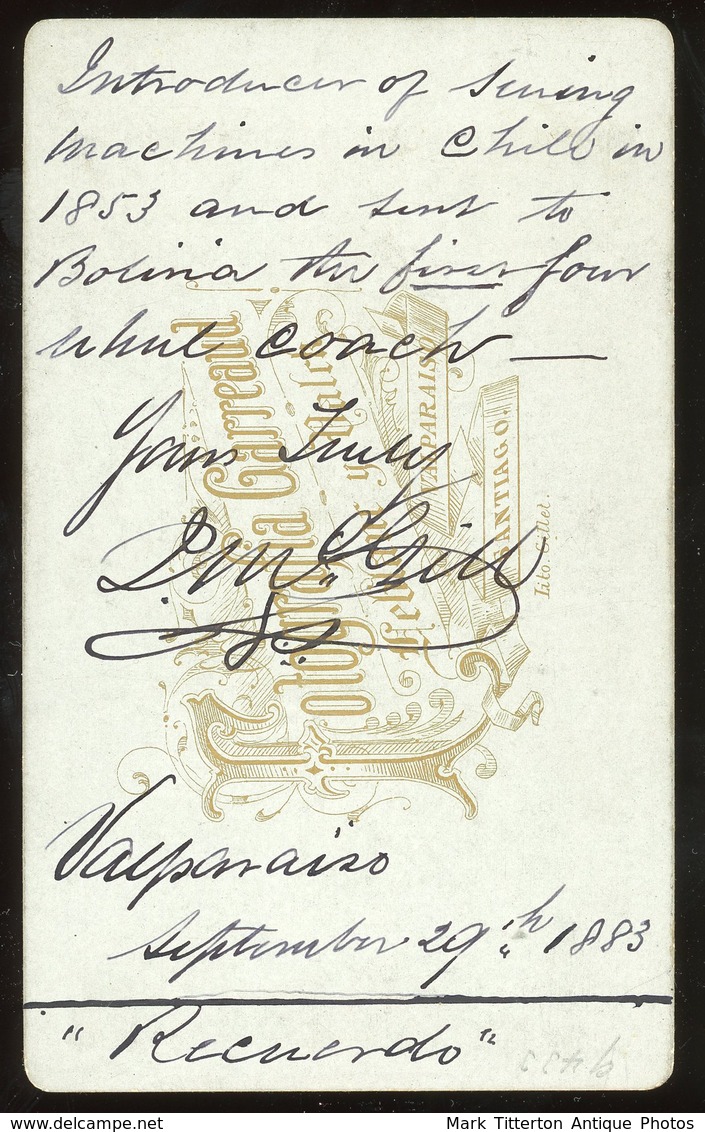 Introducer of Sewing
Machines in Chile in
1853 and sent to
Bolivia the first four
wheel coach —
Yours Truly
McGill
Valparaiso
September 29th 1883
"Recuerdo"
Fotografia Garreaud
VALPARAISO
SANTIAGO.
Lito. Gillet.
delcampe.net
Mark Titterton Antique Photos